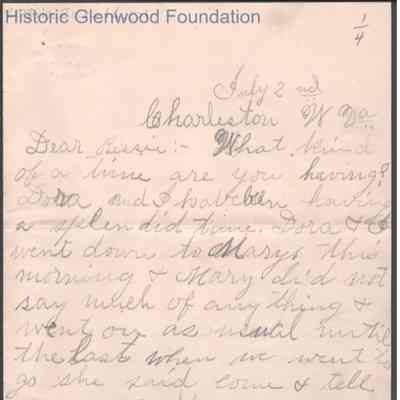 Historic Glenwood Foundation
1/4
July 2nd
Charleston W Va
Dear :- What kind
of a time are you having?
Dora and I have been having
a splendid time. Dora & I
went down to Marys this
morning & Mary did not
say much of any thing &
went on as usual until
the last when we went to
go she said come & tell